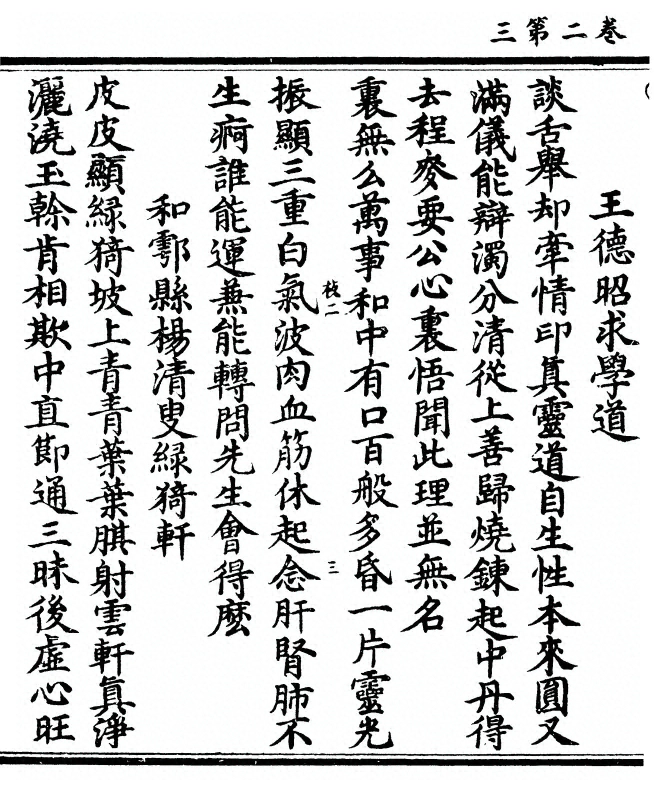 三第二卷
王德昭求學道
談舌舉却牽情印真靈道自生性本來圓又
滿儀能辯濁分清從上善歸燒鍊起中丹得
去程麥要公心裏悟聞此理並無名
裏無么萬事和中有口百般多昏一片靈光
枝二
三
振顯三重白氣波肉血筋休起念肝腎肺不
生痾誰能運兼能轉問先生會得麼
和鄠縣楊清叟綠猗軒
皮皮顯綠猗坡上青青葉葉腜射雲軒真淨
灑澆玉榦肯相欺中直節通三昧後虛心旺